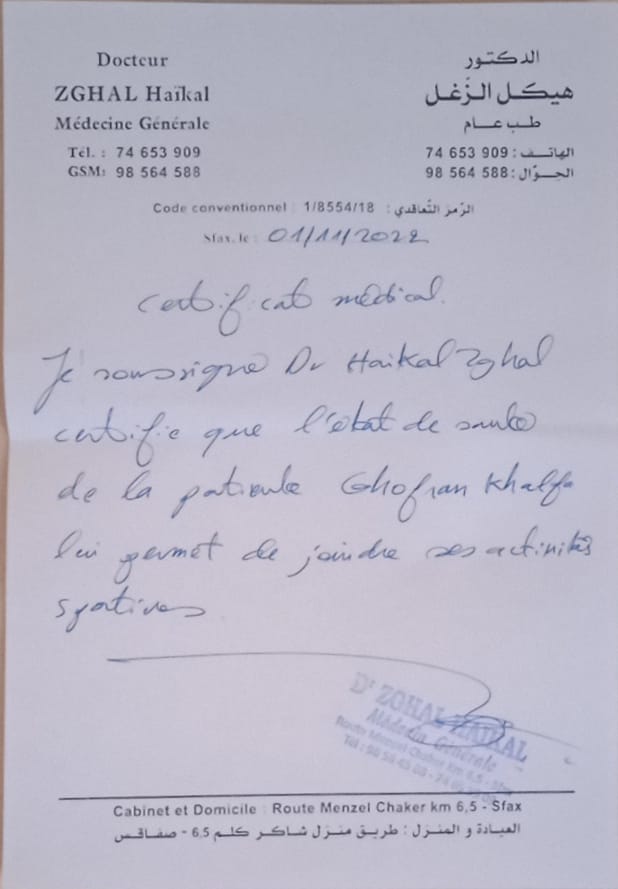 Docteur
ZGHAL Haïkal
Médecine Générale
Tél. : 74 653 909
GSM: 98 564 588
الدكتور
هيكل الزّغل
طب عام
الهاتف : 74 653 909
الجوّال : 98 564 588
Code conventionnel : 1/8554/18 : الرّمز التّعاقدي
Sfax, le : 01/11/2022
Certificat médical.
Je soussigné Dr Haikal Zghal
certifie que l'état de santé
de la patiente Ghofran Khalfa
lui permet de joindre ses activités
sportives
Dr ZGHAL HAIKAL
Médecin Générale
Route Menzel Chaker km 6,5 - Sfax
Tél : 98 56 45 88 - 74
Cabinet et Domicile : Route Menzel Chaker km 6,5 - Sfax
العيادة و المنزل : طريق منزل شاكر كلم 6،5 - صفاقس